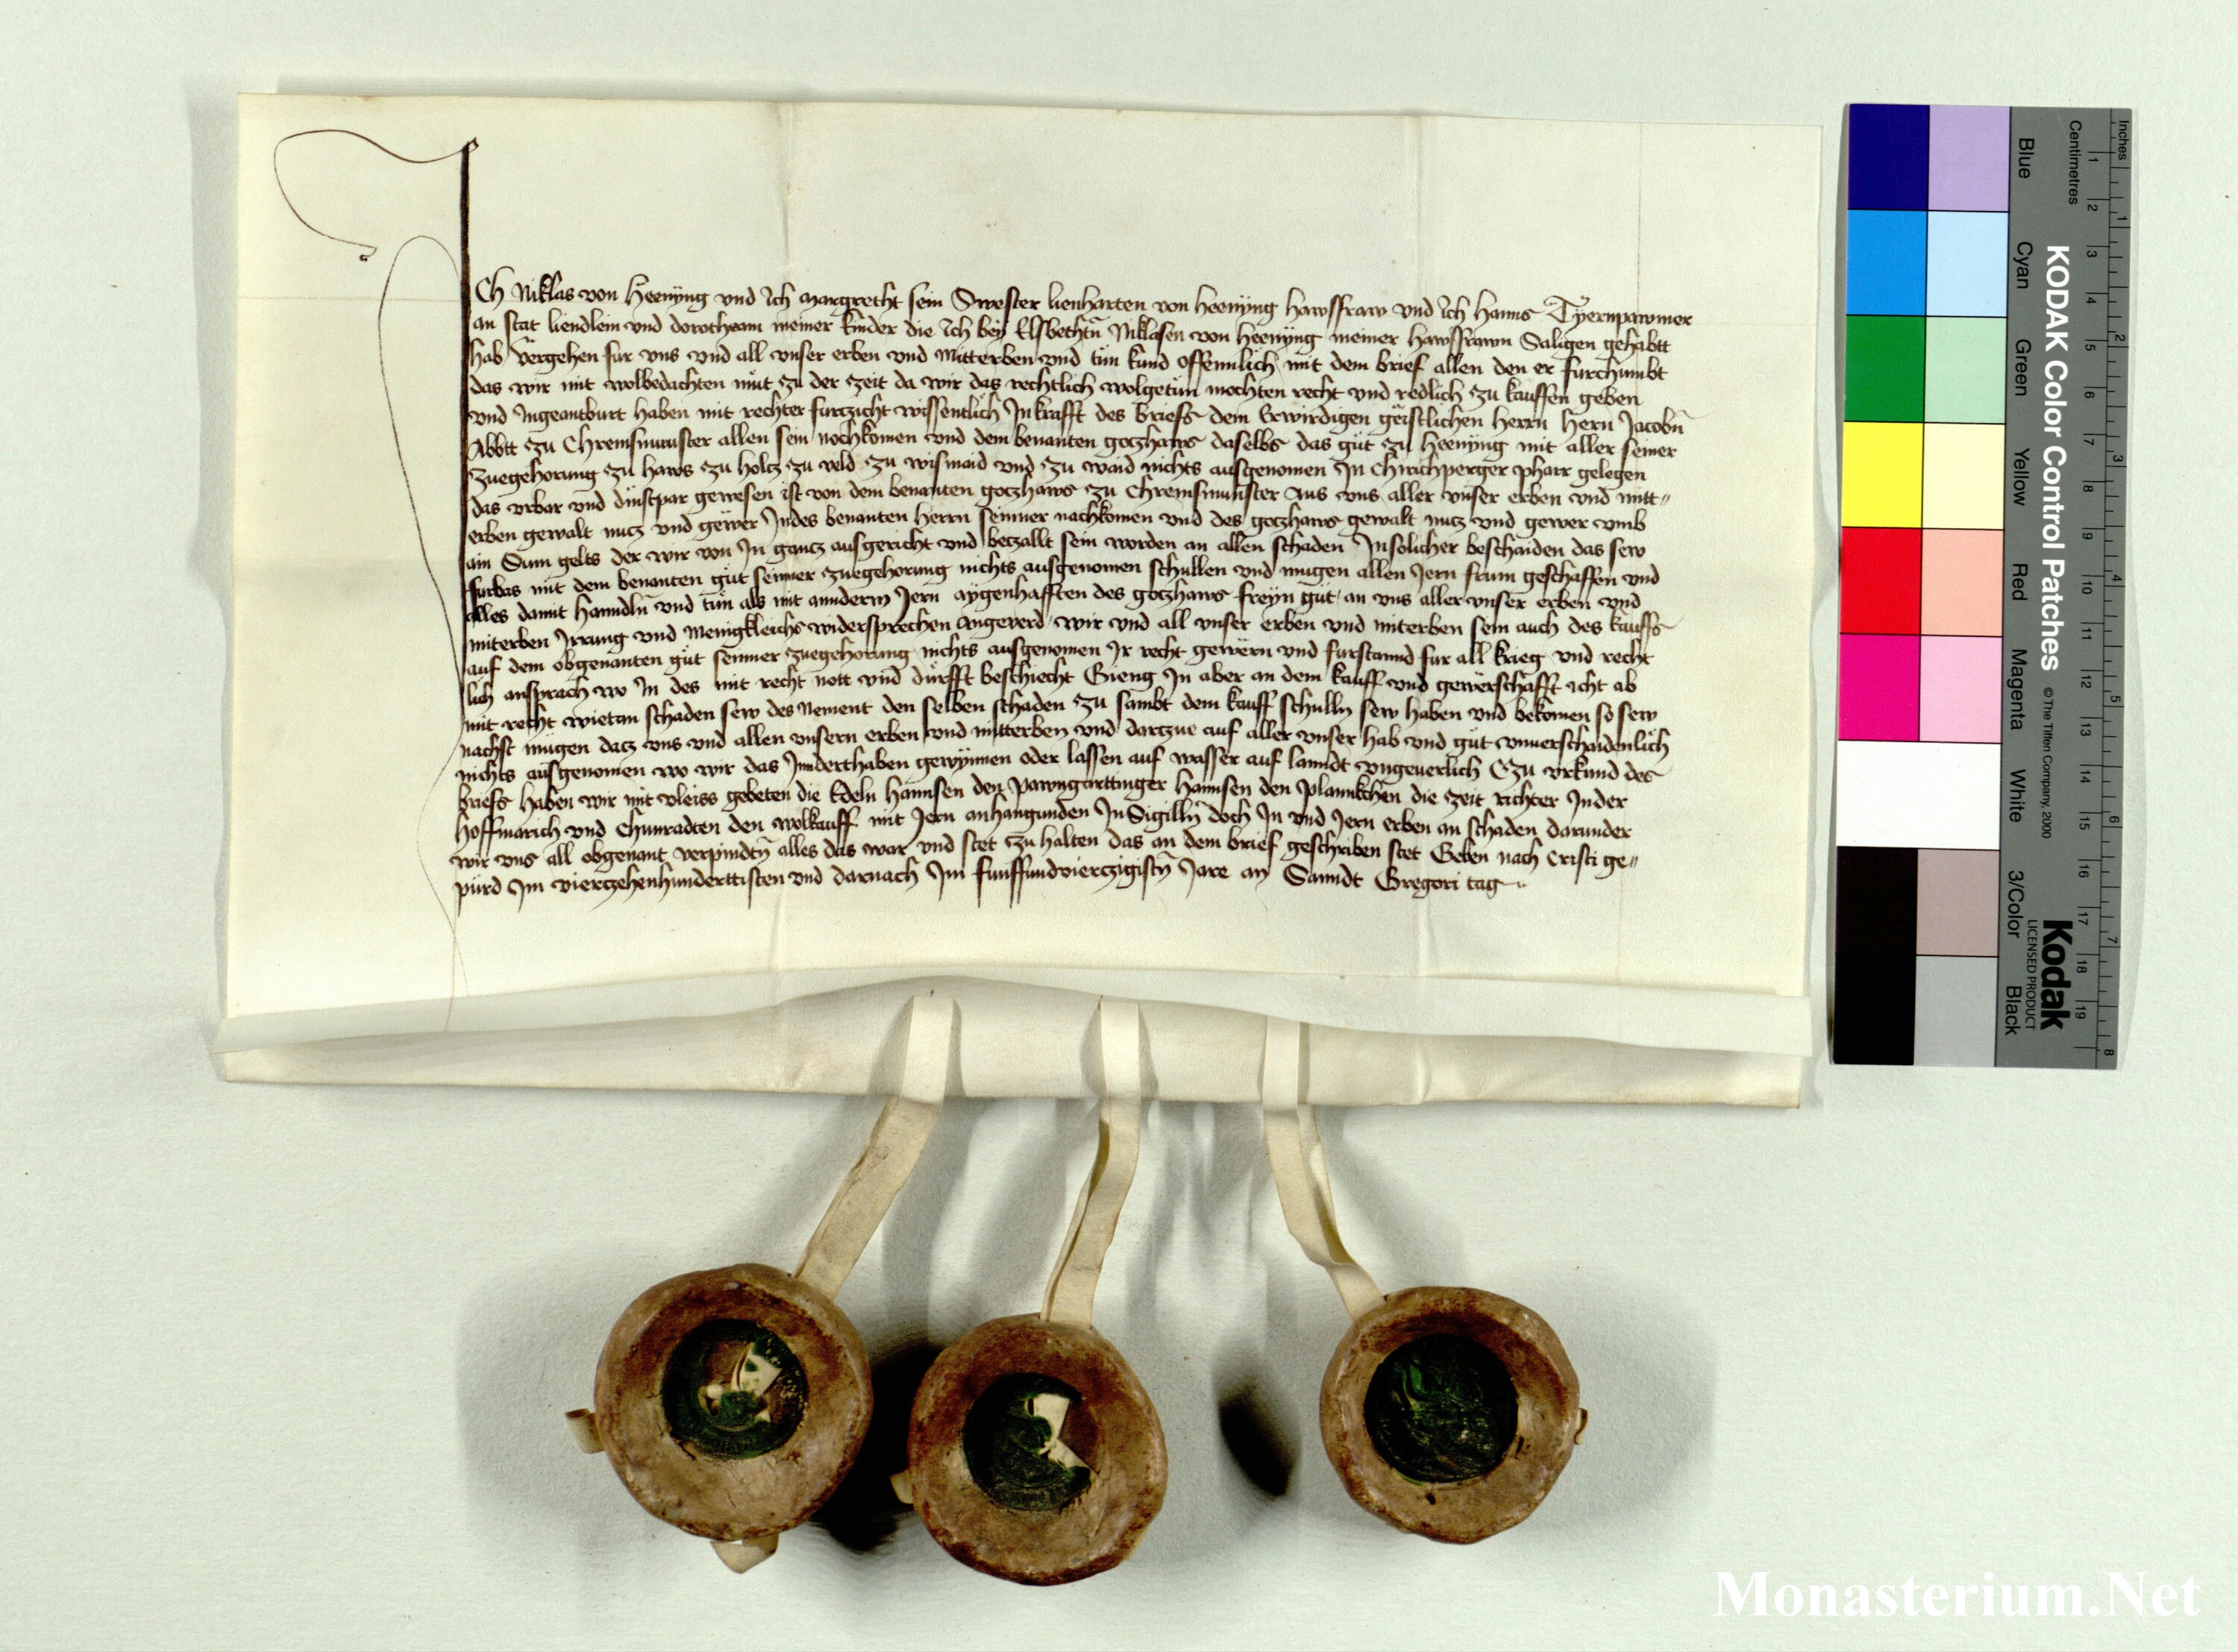 Ich Niklas von Heenyng vnd Ich Margretht sein Swester lienharten von Heenyng hawsfraw vnd Ich Hanns Tyernpawmer
an stat liendlein vnd dorotheam meiner kinder die Ich bey Elsbethtn̄ Niklasen von Heenyng meiner hawsfrawn Saligen gehabtt
hab vergehen fur vns vnd all vnser erben vnd Mitterben vnd tün kund offennlich mit dem brief allen den er furchumbt
das wir mit wolbedachten müt zu der zeit da wir das rechtlich wolgetün mochten recht vnd redlich zu kauffen geben
vnd Ingeantburt haben mit rechter furczicht wissentlich In krafft des briefs dem Erwirdigen geistlichen herrn hern Jacobn̄
Abbtt zu Chremsmunster allen sein nochkomen vnd dem benanten goczhaws daselbs das güt zu Heenyng mit aller seiner
zuegehorung zu haws zu holcz zu veld zu wismaid vnd zu waid nichts ausgenomen In Chirichperger pharr gelegen
das vrbar vnd dinstpar gewesen ist von dem benanten goczhaws zu Chremsmunster Aus vns aller vnser erben vnd mitt〃
erben gewalt nucz vnd gewer Indes benanten herrn seinner nachkomen vnd des goczhaws gewalt nucz vnd gewer vmb
ain Sum gelts der wir von In gancz ausgericht vnd beczallt sein worden an allen schaden Insolicher beschaiden das sew
furbas mit dem benanten güt seinner zuegehorung nichts ausgenomen schullen vnd mugen allen Iern frum geschaffen vnd
alles damit hanndln̄ vnd tün als mit annderm Iern aygenhafften des goczhaws freyn gut an vns aller vnser erben vnd
miterben Irrung vnd Menigkleichs widersprechen angeverd wir vnd all vnser erben vnd miterben sein auch des kauffs
auf dem obgenanten güt seinner zuegehorung nichts ausgenomen Ir recht gewern vnd furstannd fur all krieg vnd recht
lich ansprach wo In des mit recht nott vnd dürfft beschiecht Gieng In aber an dem kauff vnd gewerschafft icht ab
mit recht wietan schaden sew des Nement den selben schaden zu sambt dem kauff schulln̄ sew haben vnd bekomen so sew
nachst mügen dacz vns vnd allen vnsern erben vnd mitterben vnd darczue auf aller vnser hab vnd güt vnuerschaidenlich
nichts ausgenomen wo wir das Innderthaben gewynnen oder lassen auf wasser auf lanndt vngeuerlich Czu vrkund des
briefs haben wir mit vleiss gebeten die Edeln Hannsen den Pawngarttinger Hannsen den Plannkchen die zeit richter Inder
Hoffmarich vnd Chunradten den wolkauff mit Iern anhangunden InSigilln̄ doch In vnd Iern erben an schaden darunder
wir vns all obgenant verpindtn̄ alles das war vnd stet zu halten das an dem brief geschriben stet Geben nach Cristi ge〃
pürd Im vierczehenhunderttisten vnd darnach Im funffundvierczigistn̄ Jare an Sanndt Gregori tag
Inches
Centimetres
KODAK Color Control Patches
© The Tiffen Company, 2000
Kodak
LICENSED PRODUCT
Blue
Cyan
Green
Yellow
Red
Magenta
White
3/Color
Black
1 2 3 4 5 6 7 8 9 10 11 12 13 14 15 16 17 18 19
1 2 3 4 5 6 7 8
Monasterium.Net